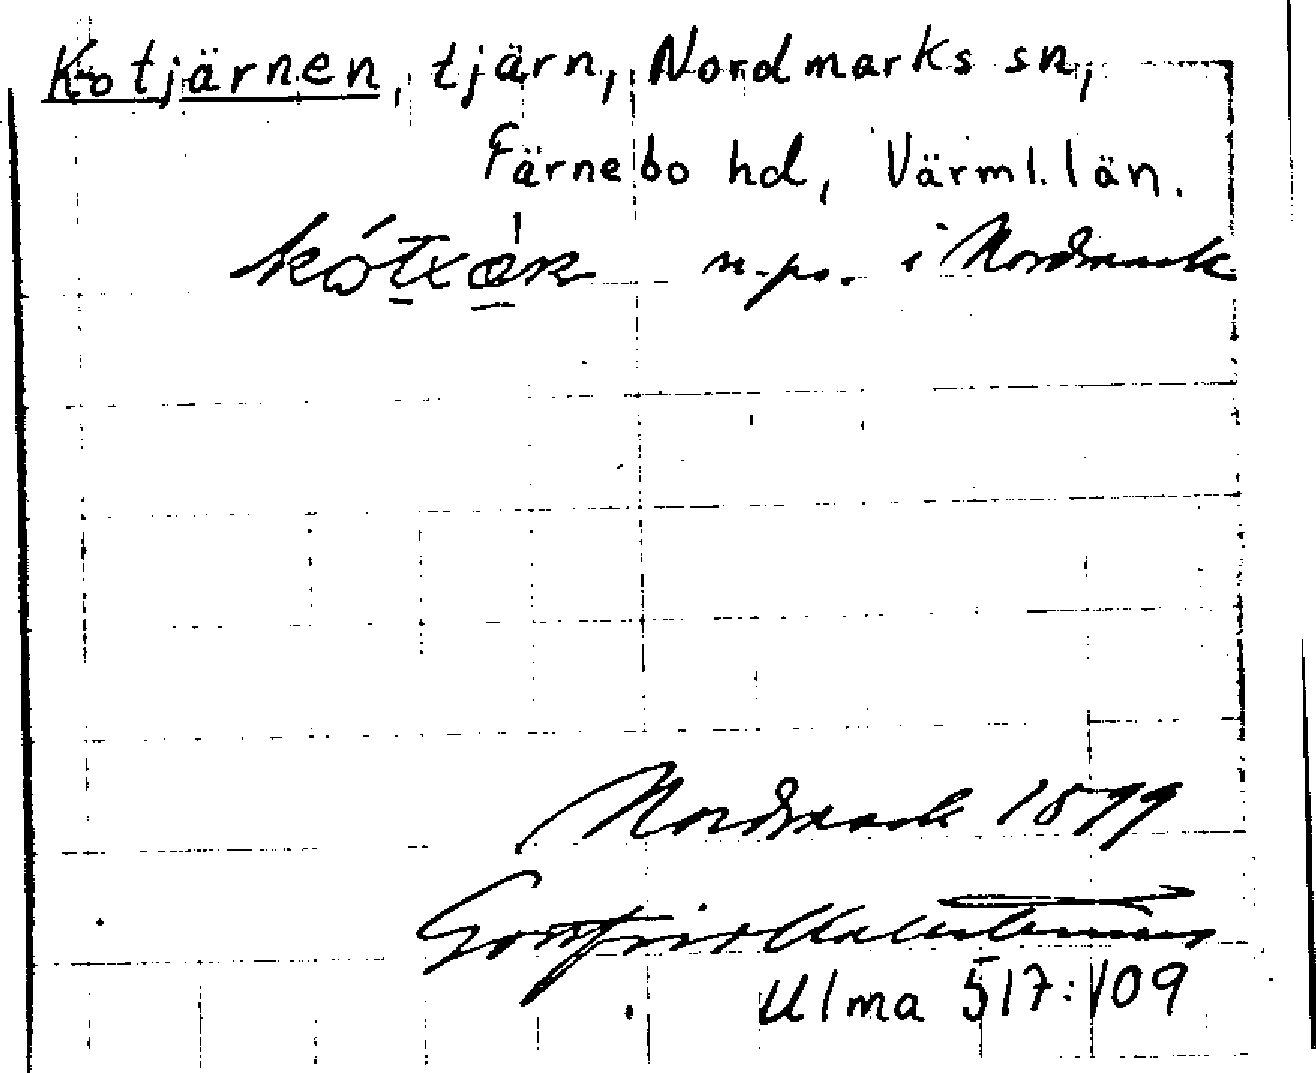 Kotjärnen, tjärn, Nordmarks sn,
Färnebo hd, Värml. län.
n. pr. i Nordmark
Nordmark 1899
Gottfrid Kallstenius
Ulma 517:109